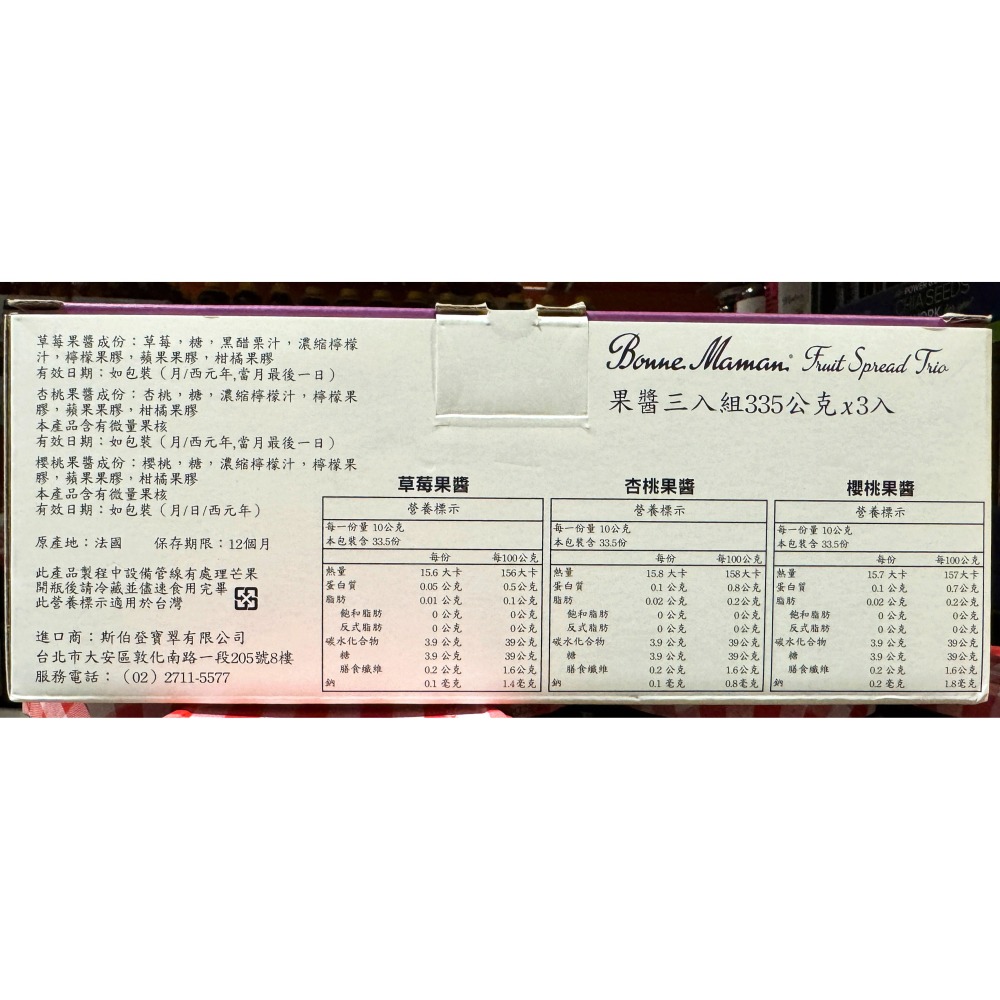 草莓果醬成份：草莓，糖，黑醋栗汁，濃縮檸檬
汁，檸檬果膠，蘋果果膠，柑橘果膠
有效日期：如包裝（月/西元年,當月最後一日）
杏桃果醬成份：杏桃，糖，濃縮檸檬汁，檸檬果
膠，蘋果果膠，柑橘果膠
本產品含有微量果核
有效日期：如包裝（月/西元年,當月最後一日）
櫻桃果醬成份：櫻桃，糖，濃縮檸檬汁，檸檬果
膠，蘋果果膠，柑橘果膠
本產品含有微量果核
有效日期：如包裝（月/日/西元年）
原產地：法國 保存期限：12個月
此產品製程中設備管線有處理芒果
開瓶後請冷藏並儘速食用完畢
此營養標示適用於台灣
進口商：斯伯登寶翠有限公司
台北市大安區敦化南路一段205號8樓
服務電話：（02）2711-5577
Bonne Maman Fruit Spread Trio
果醬三入組335公克x3入
草莓果醬
營養標示
每一份量 10公克
本包裝含 33.5份
每份 每100公克
熱量 15.6 大卡 156大卡
蛋白質 0.05 公克 0.5公克
脂肪 0.01 公克 0.1公克
飽和脂肪 0 公克 0公克
反式脂肪 0 公克 0公克
碳水化合物 3.9 公克 39公克
糖 3.9 公克 39公克
膳食纖維 0.2 公克 1.6公克
鈉 0.1 毫克 1.4毫克
杏桃果醬
營養標示
每一份量 10公克
本包裝含 33.5份
每份 每100公克
熱量 15.8 大卡 158大卡
蛋白質 0.1 公克 0.8公克
脂肪 0.02 公克 0.2公克
飽和脂肪 0 公克 0公克
反式脂肪 0 公克 0公克
碳水化合物 3.9 公克 39公克
糖 3.9 公克 39公克
膳食纖維 0.2 公克 1.6公克
鈉 0.1 毫克 0.8毫克
櫻桃果醬
營養標示
每一份量 10公克
本包裝含 33.5份
每份 每100公克
熱量 15.7 大卡 157大卡
蛋白質 0.1 公克 0.7公克
脂肪 0.02 公克 0.2公克
飽和脂肪 0 公克 0公克
反式脂肪 0 公克 0公克
碳水化合物 3.9 公克 39公克
糖 3.9 公克 39公克
膳食纖維 0.2 公克 1.6公克
鈉 0.2 毫克 1.8毫克
CHIA SEEDS